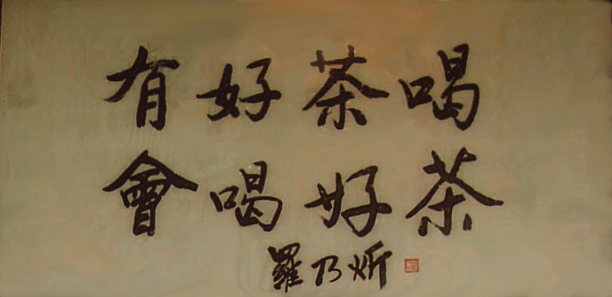 有好茶喝
會喝好茶
羅乃炘